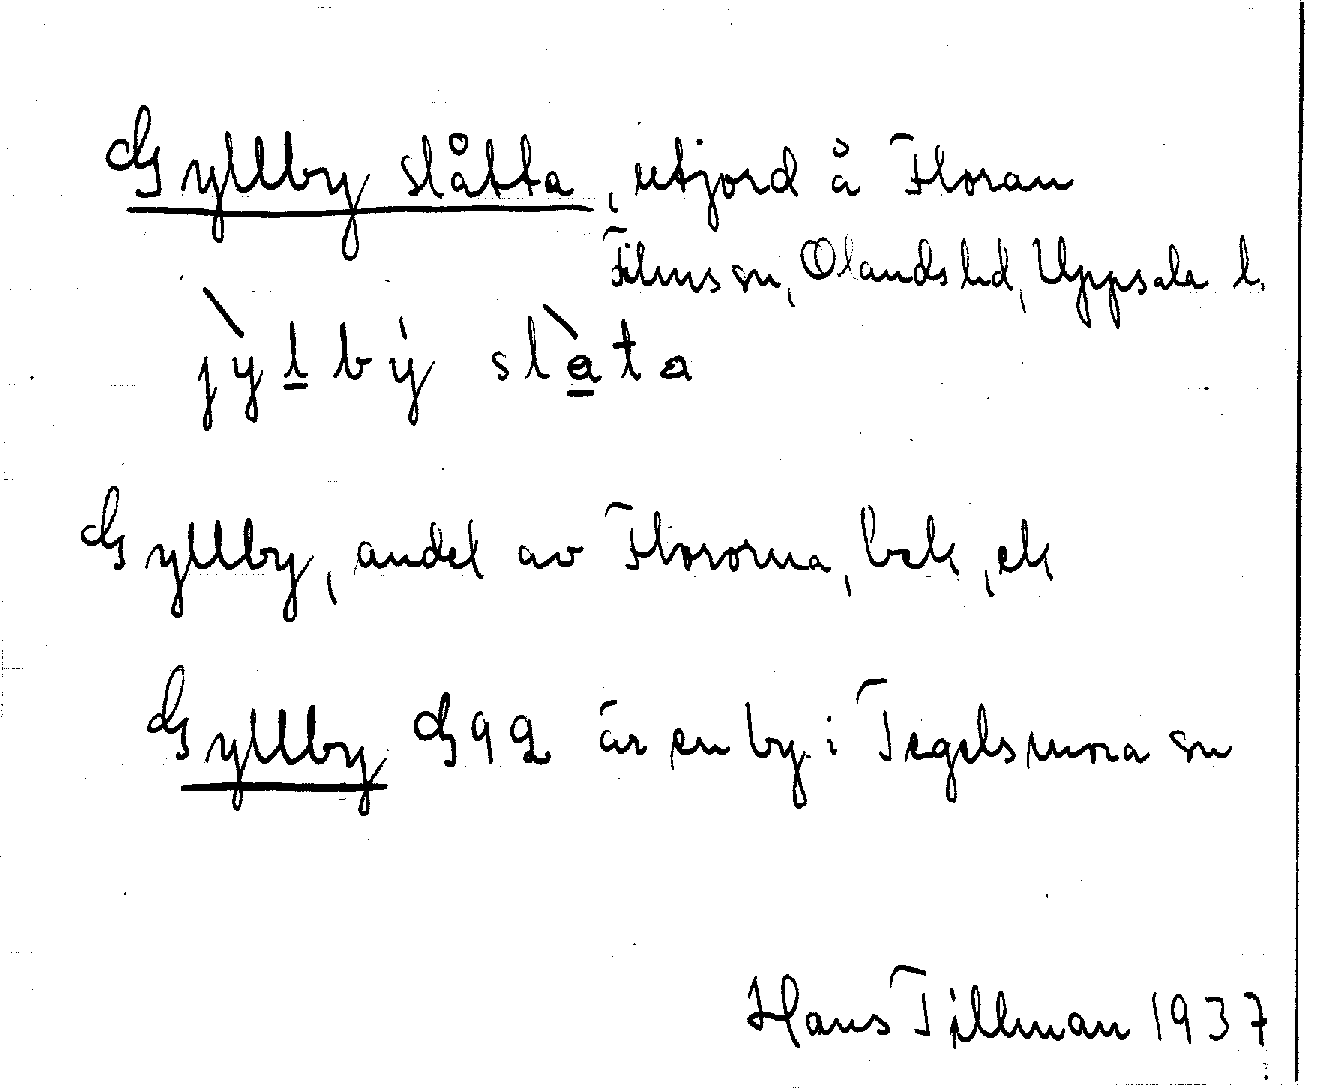 Gyllby slåtta, utjord å Floran
Films sn, Olands hd, Uppsala l.
jỳlbẏ slàta
Gyllby, andel av Flororna, bek, ek
Gyllby G92 är en by i Tegelsmora sn
Hans Tillman 1937